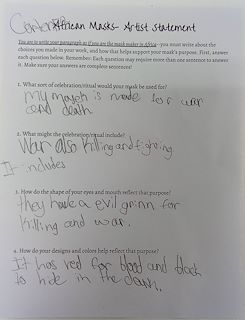 Carter African Masks- Artist Statement
You are to write your paragraph as if you are the mask maker in Africa - you must write about the
choices you made in your work, and how that helps support your mask's purpose. First, answer
each question below. Remember: Each question may require more than one sentence to answer
it. Make sure your answers are complete sentences!
1. What sort of celebration/ritual would your mask be used for?
My mask is made for war
and death
2. What might the celebration/ritual include?
War also killing and fighting
It includes
3. How do the shape of your eyes and mouth reflect that purpose?
they have a evil grinn for
killing and war.
4. How do your designs and colors help reflect that purpose?
It has red for blood and black
to hide in the dark.